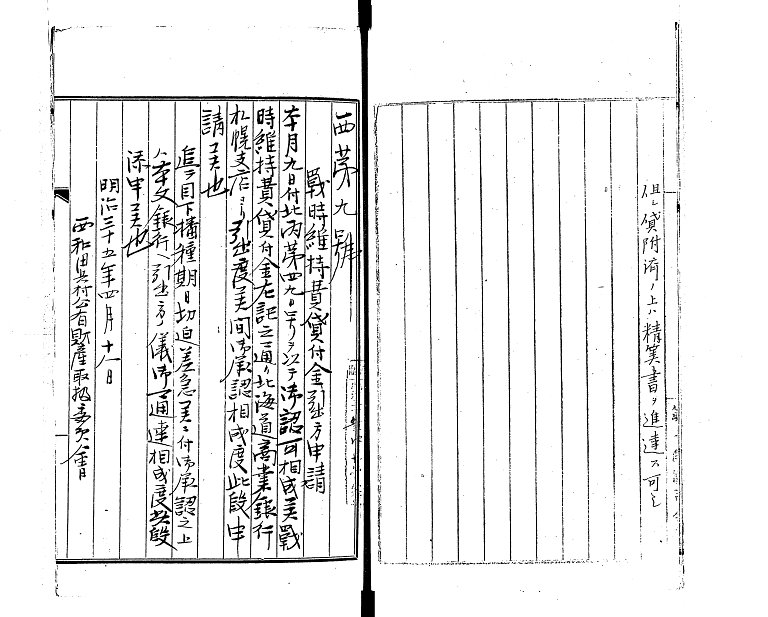 但シ貸附済ノ上ハ精算書ヲ進達ス可シ
西第九號
戰時維持費貸付金引出方申請
本月九日付北丙第四九号ヲ以テ御認可相成候戰
時維持費貸付金左記之通リ北海道商業銀行
札幌支店ヨリ引出度候間御承認相成度此段申
請候也
追テ目下播種期日切迫差急候ニ付御承認之上
ハ本文銀行ヘ引出方ノ儀御通達相成度此段
添申候也
明治三十五年四月十八日
西和田兵村公有財産取扱委員会